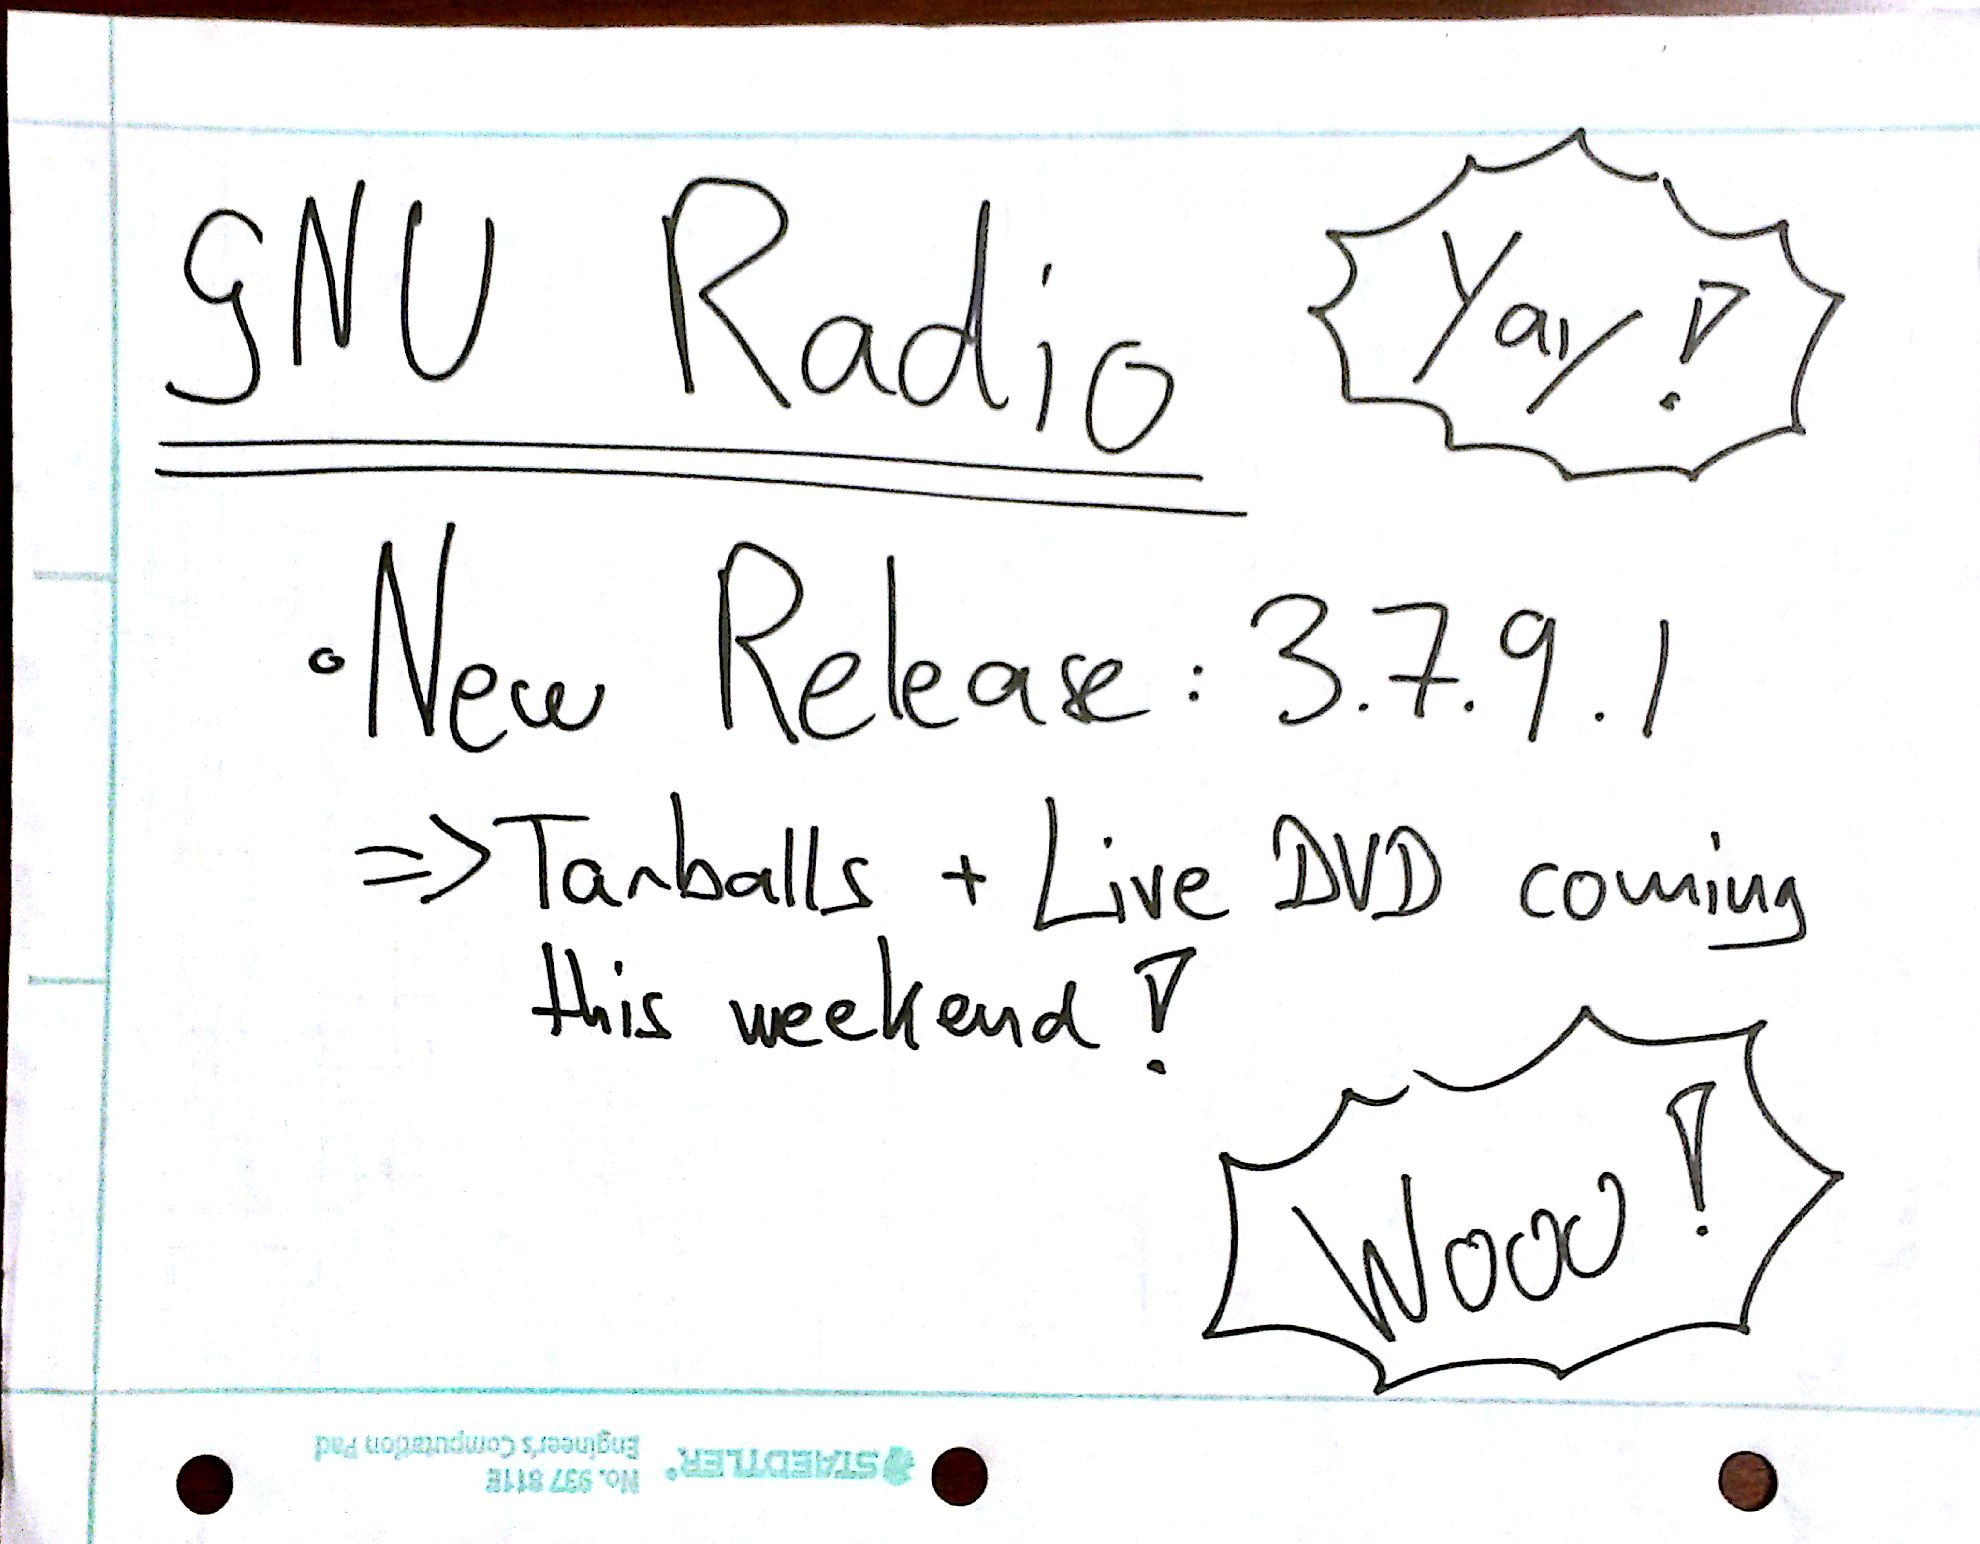 GNU Radio
Yay!
• New Release: 3.7.9.1
=> Tarballs + Live DVD coming
this weekend!
Wooo!
STAEDTLER®
No. 937 811E
Engineer's Computation Pad